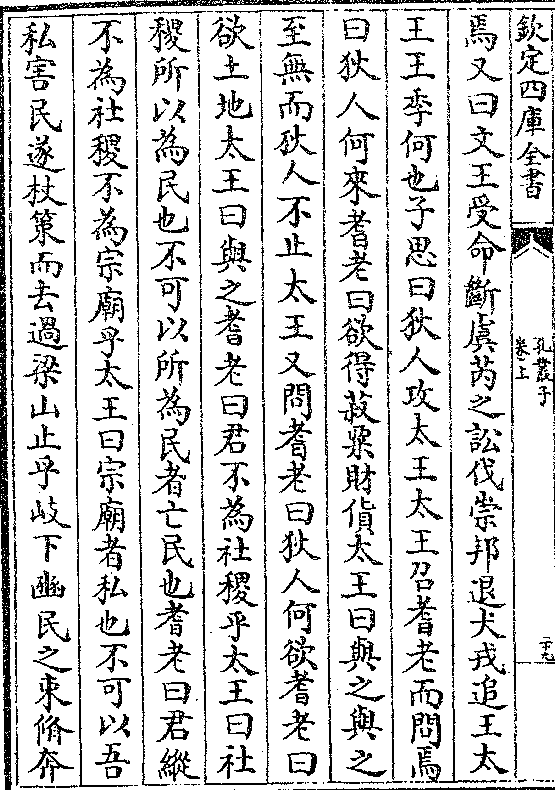 欽定四庫全書
孔叢子
卷上
二十九
焉又曰文王受命斷虞芮之訟伐崇邦退犬戎追王太
王王季何也子思曰狄人攻太王太王召耆老而問焉
曰狄人何來耆老曰欲得菽粟財貨太王曰與之與之
至無而狄人不止太王又問耆老曰狄人何欲耆老曰
欲土地太王曰與之耆老曰君不為社稷乎太王曰社
稷所以為民也不可以所為民者亡民也耆老曰君縱
不為社稷不為宗廟乎太王曰宗廟者私也不可以吾
私害民遂杖策而去過梁山止乎岐下豳民之束脩奔